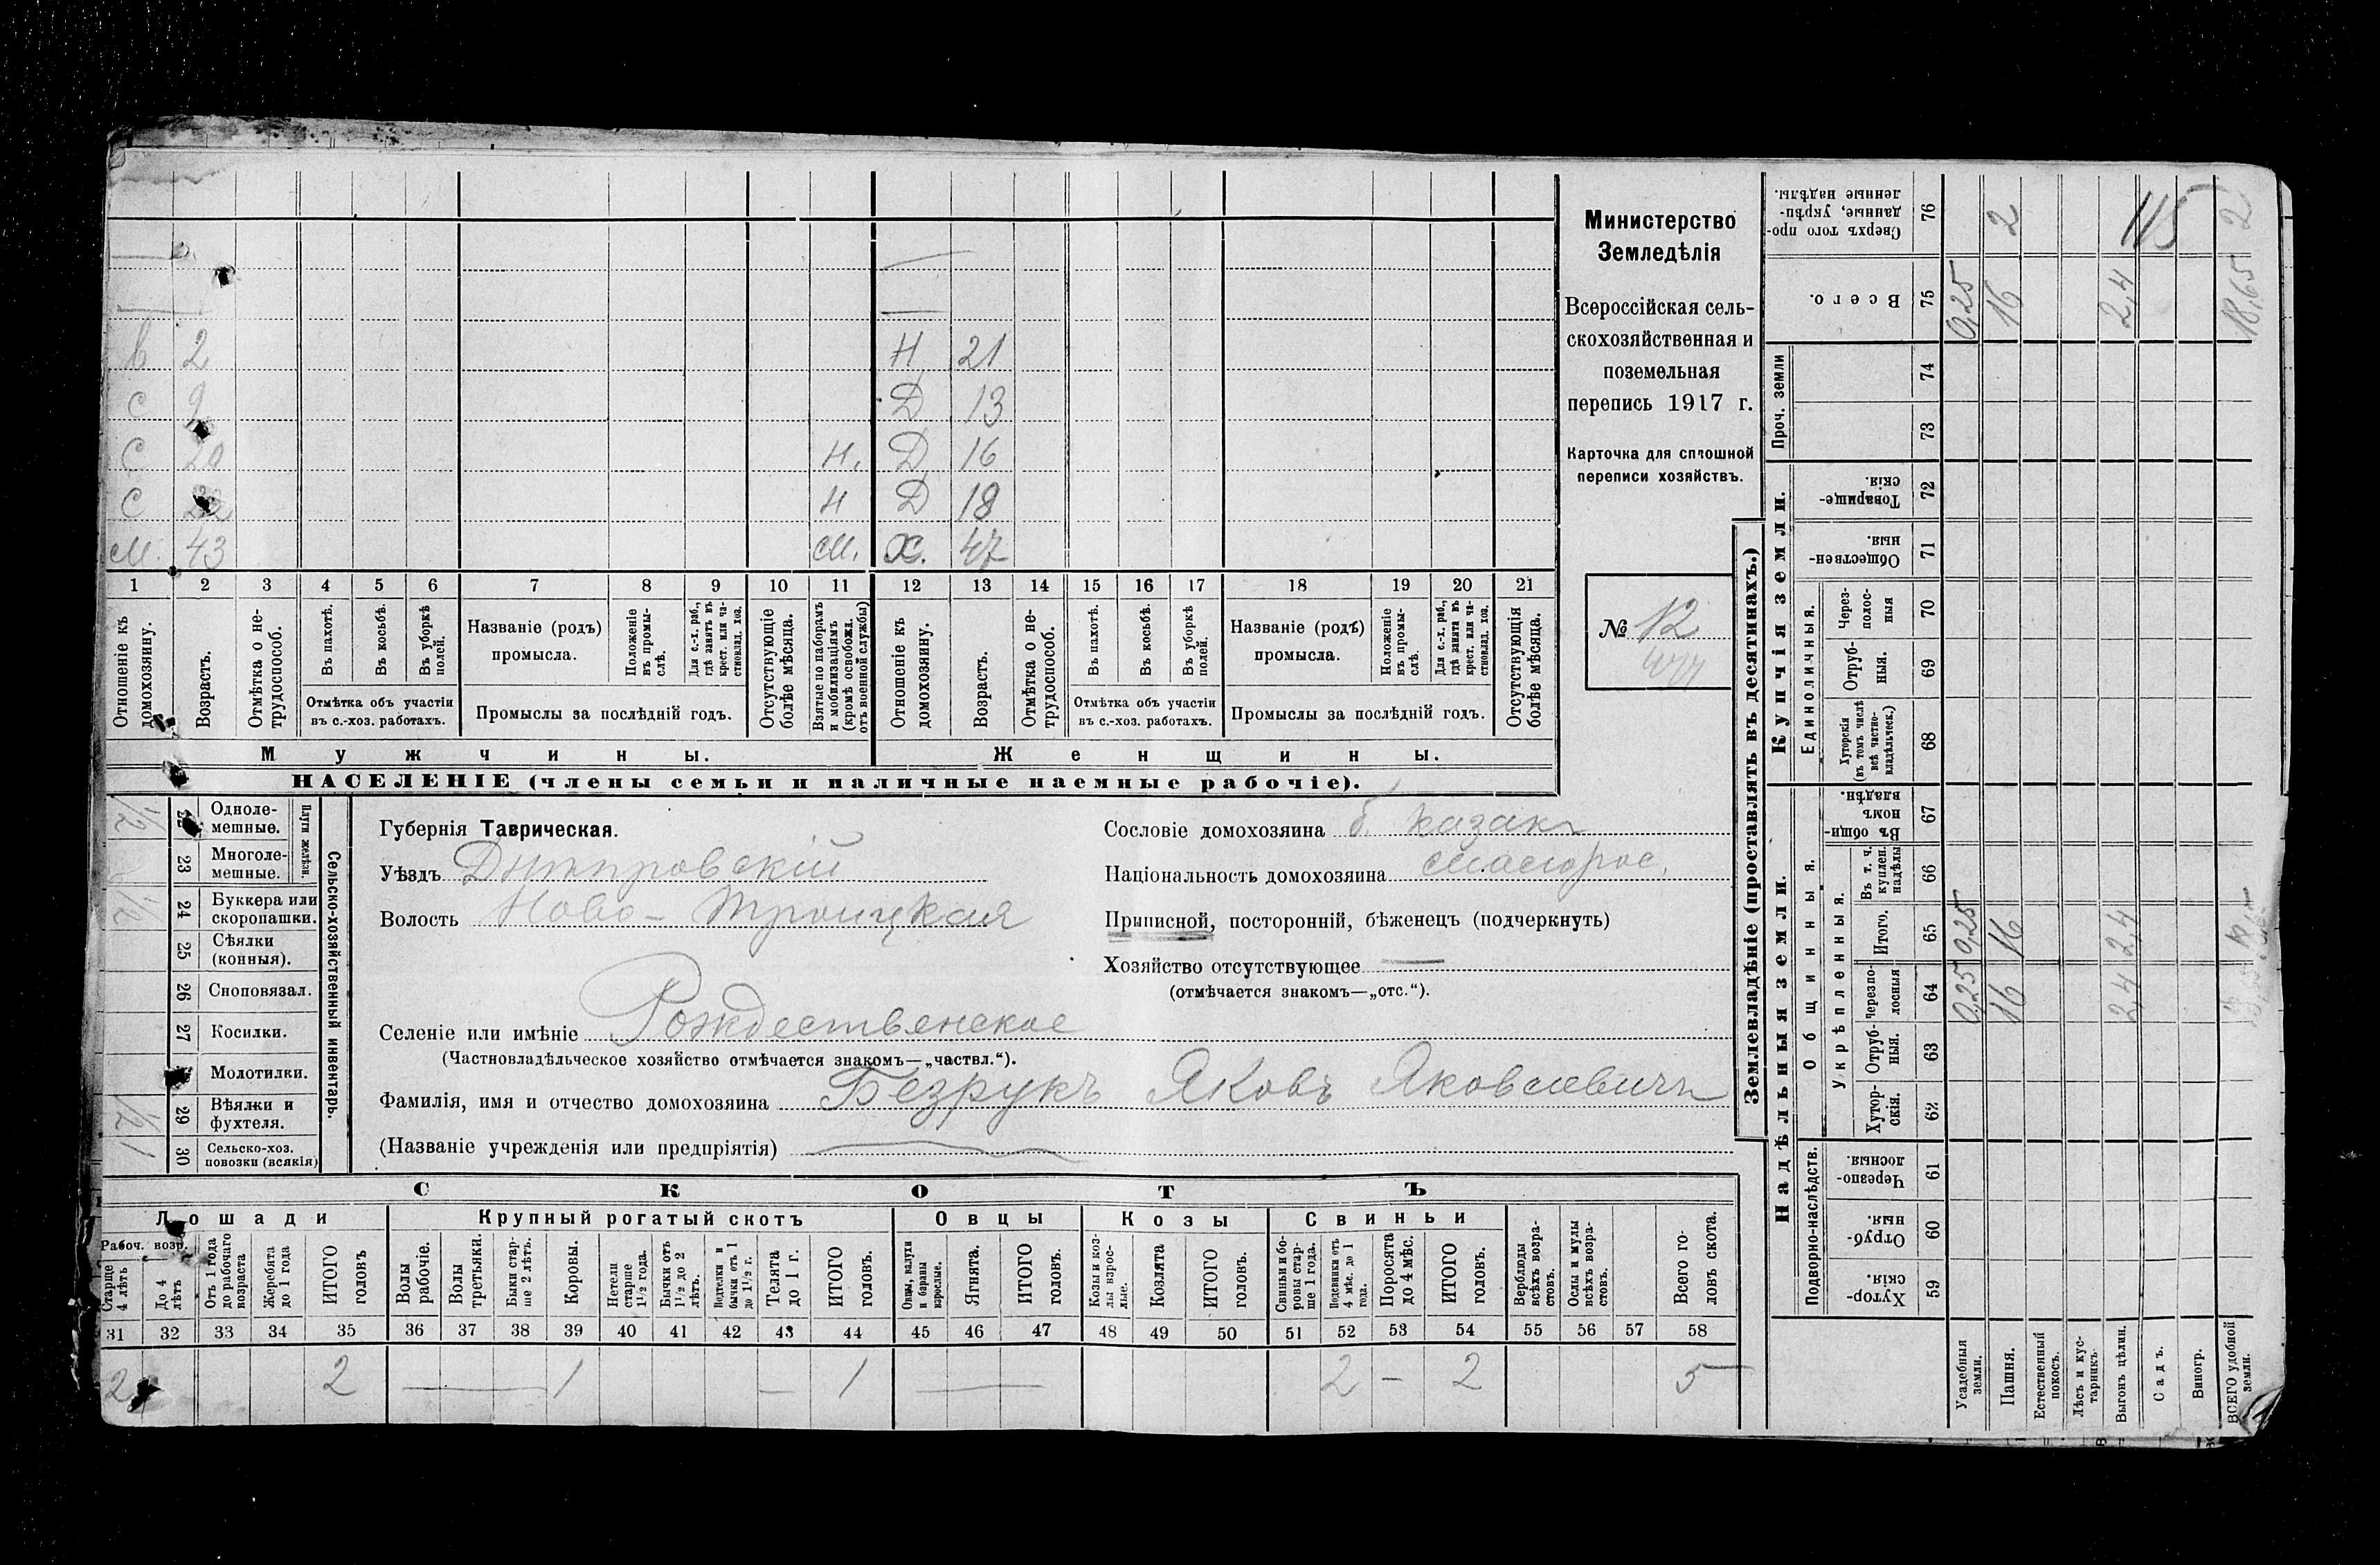 в 2 Н 21
с 9 Д 13
С 20 Н. Д 16
С Н Д 18
М. 43 М. Х. 47
1 2 3 4 5 6 7 8 9 10 11 12 13 14 15 16 17 18 19 20 21
Отношеніе къ домохозяину.
Возрастъ.
Отмѣтка о нетрудоспособ.
Въ пахотѣ.
Въ косьбѣ.
Въ уборкѣ полей.
Отмѣтка объ участіи въ с.-хоз. работахъ.
Названіе (родъ) промысла.
Положеніе въ промыслѣ.
Для с.-х. раб., гдѣ занятъ въ крест. или частновлад. хоз.
Промыслы за послѣдній годъ.
Отсутствующіе болѣе мѣсяца.
Взятые по наборамъ и мобилизаціямъ (кромѣ освобожд. отъ военной службы)
Отношеніе къ домохозяину.
Возрастъ.
Отмѣтка о нетрудоспособ.
Въ пахотѣ.
Въ косьбѣ.
Въ уборкѣ полей.
Отмѣтка объ участіи въ с.-хоз. работахъ.
Названіе (родъ) промысла.
Положеніе въ промыслѣ.
Для с.-х. раб., гдѣ занята въ крест. или частновлад. хоз.
Промыслы за послѣдній годъ.
Отсутствующія болѣе мѣсяца.
Мужчины. Женщины.
НАСЕЛЕНІЕ (члены семьи и наличные наемные рабочіе).
Министерство
Земледѣлія
Всероссійская сель-
скохозяйственная и
поземельная
перепись 1917 г.
Карточка для сплошной
переписи хозяйствъ.
№ 12
1/2 22 Однолемешные.
23 Многолемешные.
Плуги желѣзн.
1/2 24 Буккера или скоропашки.
25 Сѣялки (конныя).
26 Сноповязал.
27 Косилки.
Молотилки.
1/2 29 Вѣялки и фухтеля.
1 30 Сельско-хоз. повозки (всякія)
Сельско-хозяйственный инвентарь.
Губернія Таврическая.
Уѣздъ Днепровскій
Волость Ново-Троицкая
Селеніе или имѣніе Рождественское
(Частновладѣльческое хозяйство отмѣчается знакомъ—„частвл.“).
Фамилія, имя и отчество домохозяина Безрукъ Яковъ Яковлевичъ
(Названіе учрежденія или предпріятія)
Сословіе домохозяина б. казакъ
Національность домохозяина малорос.
Приписной, посторонній, бѣженецъ (подчеркнуть)
Хозяйство отсутствующее —
(отмѣчается знакомъ—„отс.“).
СКОТЪ
Лошади Крупный рогатый скотъ Овцы Козы Свиньи
Рабоч. возр.
Старше 4 лѣтъ
До 4 лѣтъ
Отъ 1 года до рабочаго возраста
Жеребята до 1 года
ИТОГО головъ
Волы рабочіе.
Волы третьяки.
Быки старше 2 лѣтъ.
Коровы.
Нетели старше 1 1/2 года.
Бычки отъ 1 1/2 до 2 лѣтъ.
Подтелки и бычки отъ 1 до 1 1/2 г.
Телята до 1 г.
ИТОГО головъ.
Овцы, валухи и бараны взрослые.
Ягнята.
ИТОГО головъ.
Козы и козлы взрослые.
Козлята
ИТОГО головъ.
Свиньи и боровы старше 1 года.
Подсвинки отъ 4 мѣс. до 1 года.
Поросята до 4 мѣс.
ИТОГО головъ.
Верблюды всѣхъ возрастовъ.
Ослы и мулы всѣхъ возрастовъ.
Всего головъ скота.
31 32 33 34 35 36 37 38 39 40 41 42 43 44 45 46 47 48 49 50 51 52 53 54 55 56 57 58
2 2 — 1 — 1 — 2 — 2 5
Землевладѣніе (проставлять въ десятинахъ.)
Надѣльныя земли. Купчія земли. Проч. земли
Подворно-наслѣдств. Общинныя. Единоличныя.
Укрѣпленныя.
Хуторскія. 59
Отрубныя. 60
Черезполосныя. 61
Хуторскія. 62
Отрубныя. 63
Черезполосныя 64
Итого. 65
Въ т. ч. куплен. надѣлы 66
Въ общинномъ владѣн. 67
Хуторскія (въ томъ числѣ всѣ частновладѣльческ.) 68
Отрубныя. 69
Черезполосныя 70
Общественныя. 71
Товарищескія. 72
73
74
Всего. 75
Сверхъ того проданные, укрѣпленные надѣлы. 76
Усадебныя земли. 0,25 0,25 0,25
Пашня. 16 16 16 2
Естественный покосъ.
Лѣсъ и кустарникъ.
Выгонъ цѣлин. 2,4 2,4 2,4
Садъ.
Виногр.
ВСЕГО удобной земли. 18,65 2
115